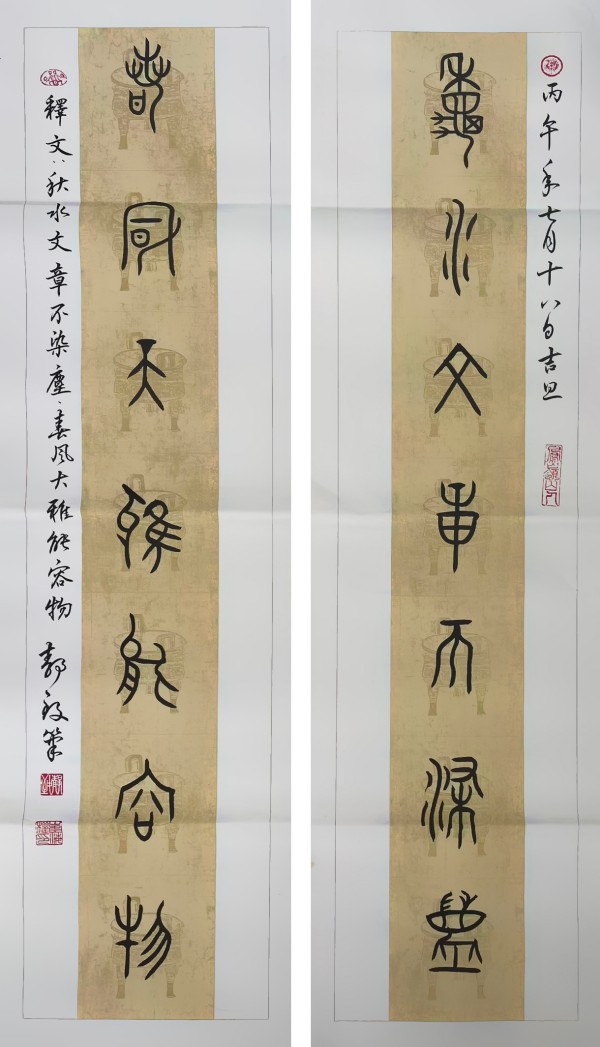 丙午年七月十八日吉旦
秋水文章不染塵
春風大雅能容物
釋文：秋水文章不染塵、春風大雅能容物